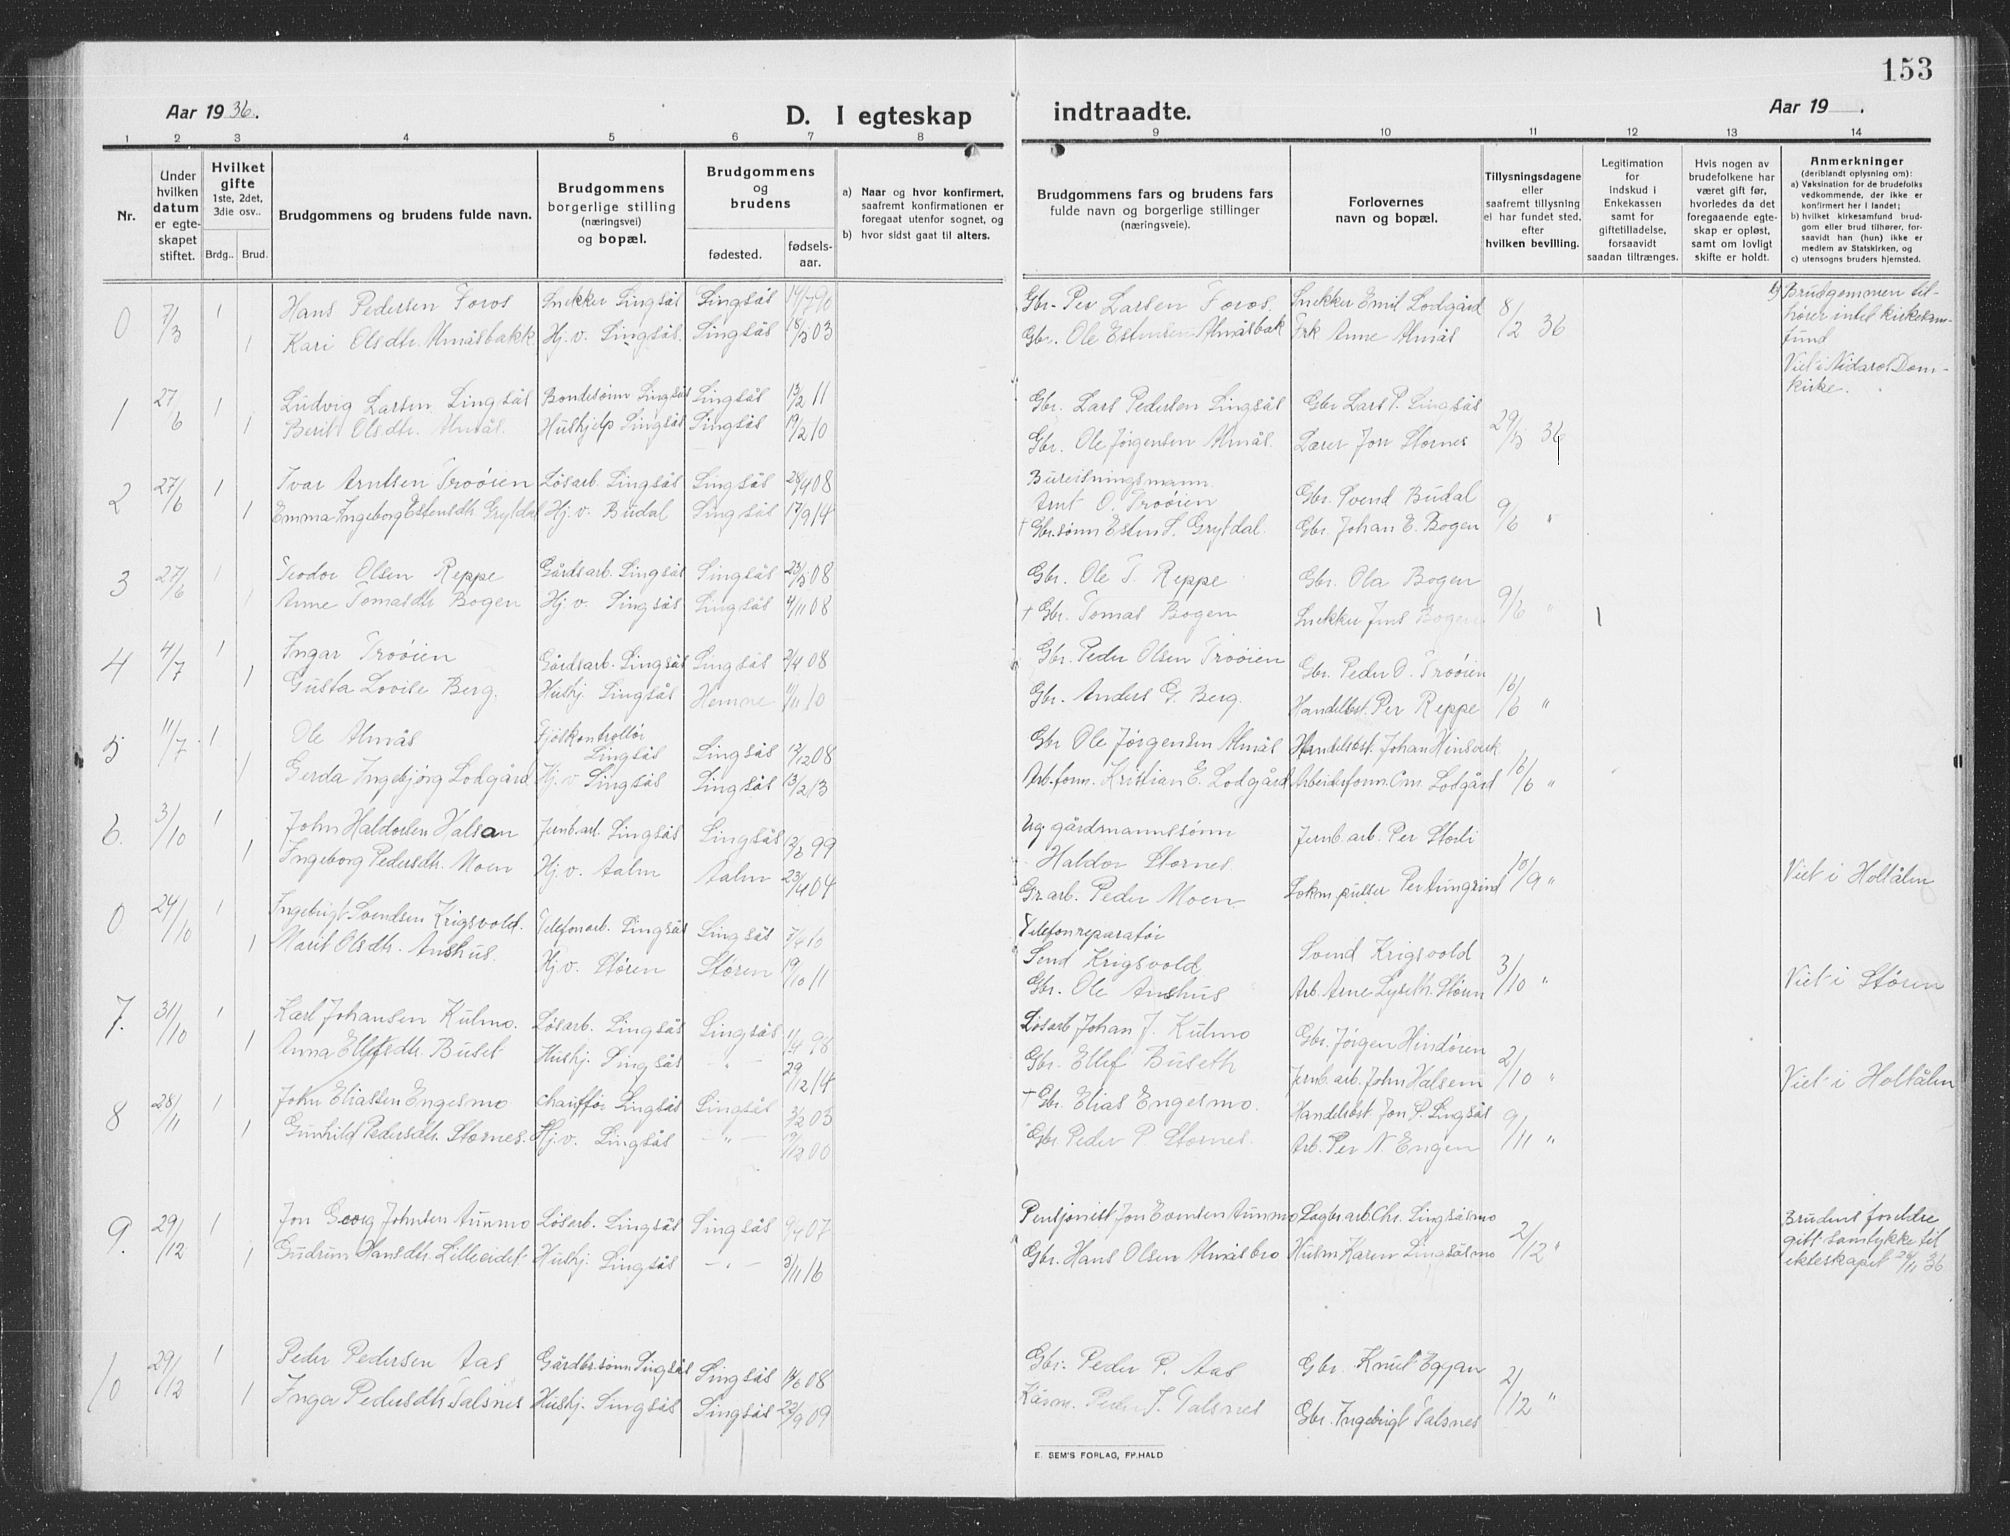 153
Aar 1936.
D. I egteskap indtraadte.
Aar 19 .
1 2 3 4 5 6 7 8 9 10 11 12 13 14
Nr.
Under hvilken datum er egteskapet stiftet.
Hvilket gifte
1ste, 2det, 3die osv..
Brdg.. Brud.
Brudgommens og brudens fulde navn.
Brudgommens borgerlige stilling (næringsvei) og bopæl.
Brudgommens og brudens
fødested. fødselsaar.
a) Naar og hvor konfirmert, saafremt konfirmationen er foregaat utenfor sognet, og
b) hvor sidst gaat til alters.
Brudgommens fars og brudens fars fulde navn og borgerlige stillinger (næringsveie).
Forlovernes navn og bopæl.
Tillysningsdagene eller saafremt tillysning ei har fundet sted, efter hvilken bevilling.
Legitimation for indskud i Enkekassen samt for giftetilladelse, forsaavidt saadan tiltrænges.
Hvis nogen av brudefolkene har været gift før, hvorledes da det foregaaende egteskap er opløst, samt om lovligt skifte er holdt.
Anmerkninger (deriblandt oplysning om):
a) Vaksination for de brudefolks vedkommende, der ikke er konfirmert her i landet;
b) hvilket kirkesamfund brudgom eller brud tilhører, forsaavidt han (hun) ikke er medlem av Statskirken, og
c) utensogns bruders hjemsted.
0 7/3 1 Hans Pedersen Foros Snekker Singsås Singsås Gbr. Per Larsen Foros. Snekker Emil Lodgård 8/2 36 b) Brudgommen tilhører intet kirkesamfund
1 Kari Olsdtr. Almåsbakk Hj.v. Singsås. Singsås 18/3 03 Gbr. Ole Estensen Almåsbak Frk Anne Almås Viet i Nidaros Domkirke.
1 27/6 1 Ludvig Larsen Singsås Bondesønn Singsås Singsås 13/2 11 Gbr. Lars Pedersen Singsås Gbr Lars P. Singsås 29/5 36
1 Berit Olsdtr. Almås. Hushjelp Singsås Singsås 19/2 10 Gbr. Ole Jørgensen Almås. Lærer Jon Stornes
2 27/6 1 Ivar Arntsen Troøien Løsarb. Singsås Singsås 28/4 08 Bureisningsmann Arnt O. Troøien Gbr. Svend Budal 9/6 "
1 Emma Ingeborg Estensdtr. Grytdal Hj.v. Budal Singsås 17/9 14 † Gbr.sønn Esten S. Grytdal. Gbr. Johan E. Bogen
3 27/6 1 Teodor Olsen Reppe Gårdsarb. Singsås Singsås 23/5 08 Gbr. Ole T. Reppe Gbr. Ola Bogen 9/6 "
1 Anne Tomasdtr Bogen Hj.v. Singsås Singsås 4/11 08 † Gbr. Tomas Bogen Snekker Jens Bogen
4 4/7 1 Ingar Troøien Gårdsarb. Singsås Singsås 2/4 08 Gbr. Peder Olsen Troøien Gbr. Peder O. Troøien 16/6 "
1 Gusta Lovise Berg. Hushj. Singsås Hemne 11/11 10 Gbr. Anders G. Berg. Handelsbst. Per Reppe
5 11/7 1 Ole Almås Fjøskontrollør Singsås Singsås 12/12 08 Gbr Ole Jørgensen Almås Handelsbst. Johan Hinsverk 16/6 "
1 Gerda Ingebjørg Lodgård Hj.v. Singsås Singsås 13/2 13 Arb.form. Kristian E. Lodgård Arbeidsform. Om. Lodgård
6. 3/10 1 John Haldorsen Halsan Jernb.arb. Singsås Singsås 12/6 99 Ug. gårdmannssønn Haldor Stornes. Jernb.arb. Per Storli 10/9 " Viet i Holtålen
1 Ingeborg Pedersdtr. Moen Hj.v. Aalen Aalen 23/4 04 Gr.arb. Peder Moen. Lokm.pusser Per Aungrind
0 24/10 1 Ingebrigt Svendsen Krigsvold. Telefonarb. Singsås Singsås 7/4 10 Telefonreparatør Send Krigsvold Svend Krigsvold 3/10 " Viet i Støren
1 Marit Olsdtr. Anshus. Hj.v. Støren Støren 19/10 11 Gbr. Ole Anshus Arb. Arne Lyseth. Støren
7. 31/10 1 Karl Johansen Kulmo. Løsarb. Singsås Singsås 11/4 98 Løsarb Johan J. Kulmo Gbr. Jørgen Hindøien 2/10 " Viet i Holtålen
1 Anna Ellefsdtr. Buset Hushj. Singsås - " - 29/12 14 Gbr. Ellef Buseth Jernb.arb. John Halsem
8 28/11 1 John Eliassen Engesmo chauffør Singsås Singsås 3/2 03 † Gbr. Elias Engesmo. Handelsbst. Jon P. Singsås 9/11 "
1 Gunhild Pedersdtr. Stornes. Hj.v. Singsås - " - Gbr Peder P Stornes. Arb. Per N. Engen
9. 29/12 1 Jon Georg Johnsen Aunmo Løsarb. Singsås Singsås 9/4 07 Pensjonist Jon Aunmo Lagbr.arb. Chr. Singsåsmo 2/12 " Brudens foreldre gitt samtykke til ekteskapet 26/11 36
1 Gudrun Hansdtr. Lilleeidet Hushj. Singsås - " - 3/11 16 Gbr. Hans Olsen Almåsbro Husm. Karen Singsåsmo
10 29/12 1 Peder Pedersen Aas Gårdbr.sønn Singsås Singsås 14/6 08 Gbr. Peder P. Aas Gbr. Knut Eggan 2/12 "
1 Inga Pedersdtr. Talsnes Hushj. Singsås Singsås 22/9 09 Peder J. Talsnes Gbr. Ingebrigt Talsnes
E. SEM'S FORLAG, FR.HALD